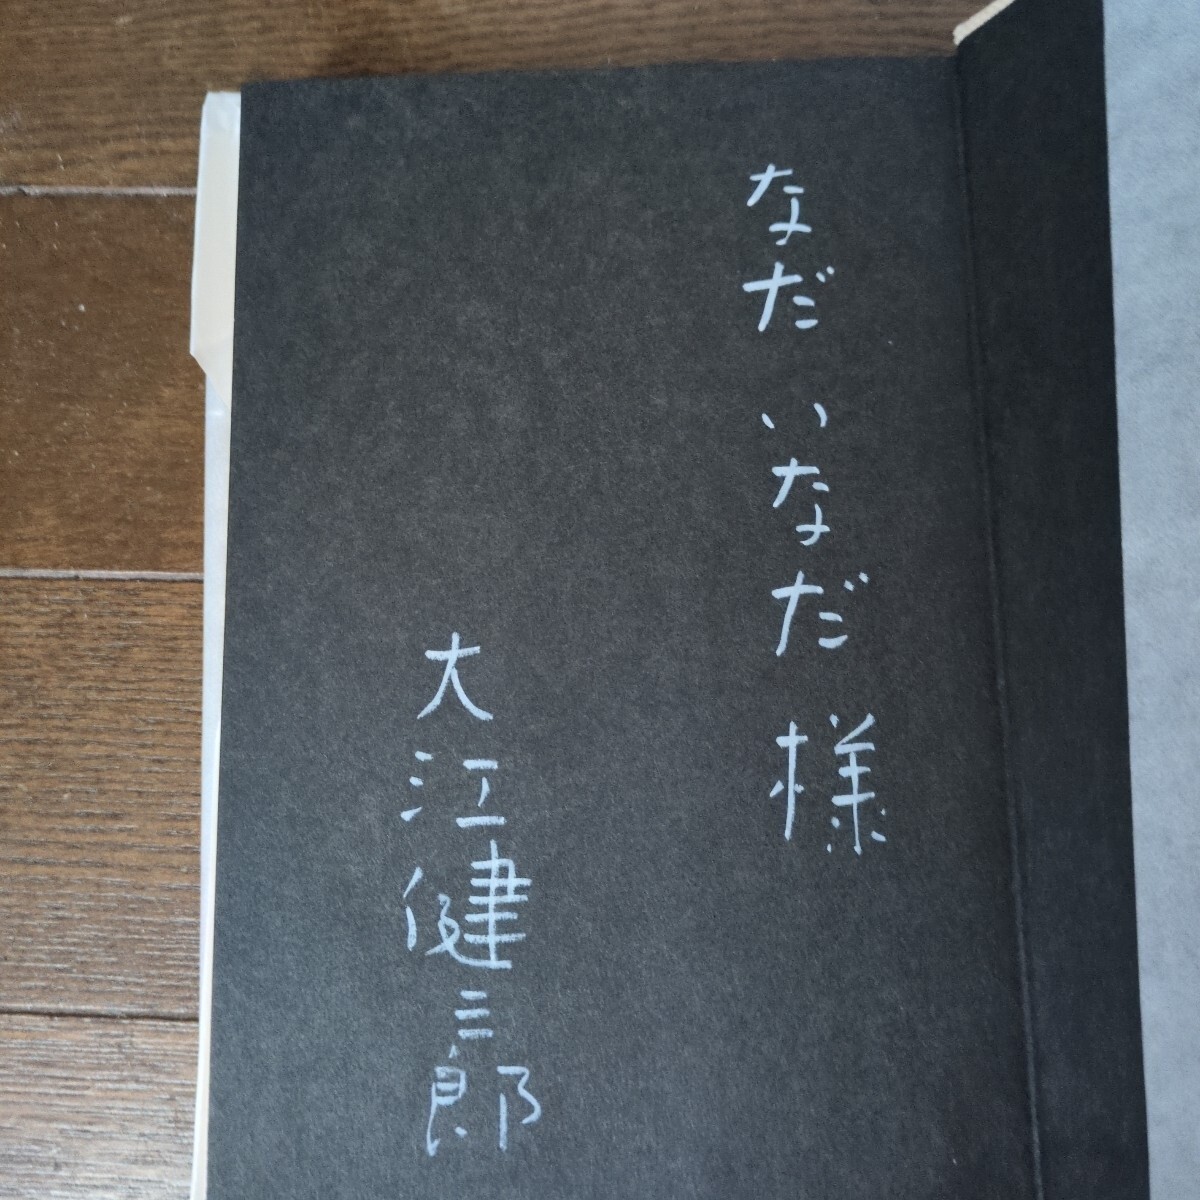 なだ いなだ 様
大江健三郎